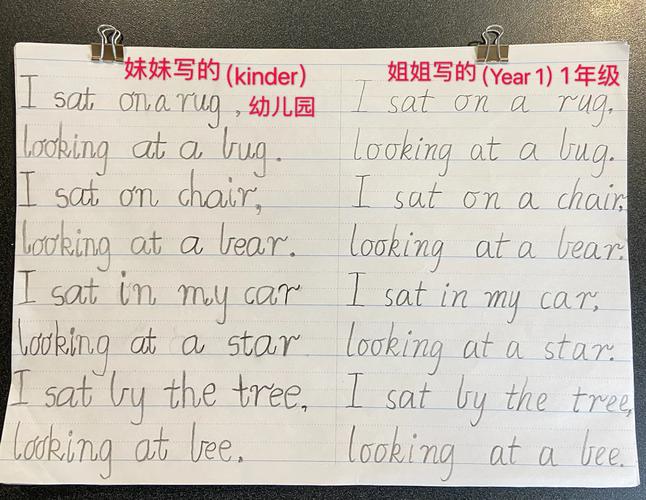 妹妹写的 (kinder)
幼儿园
I sat on a rug,
looking at a bug.
I sat on chair,
looking at a bear.
I sat in my car
looking at a star
I sat by the tree,
looking at bee.
姐姐写的 (Year 1) 1年级
I sat on a rug,
looking at a bug.
I sat on a chair,
looking at a bear.
I sat in my car,
looking at a star.
I sat by the tree,
looking at a bee.